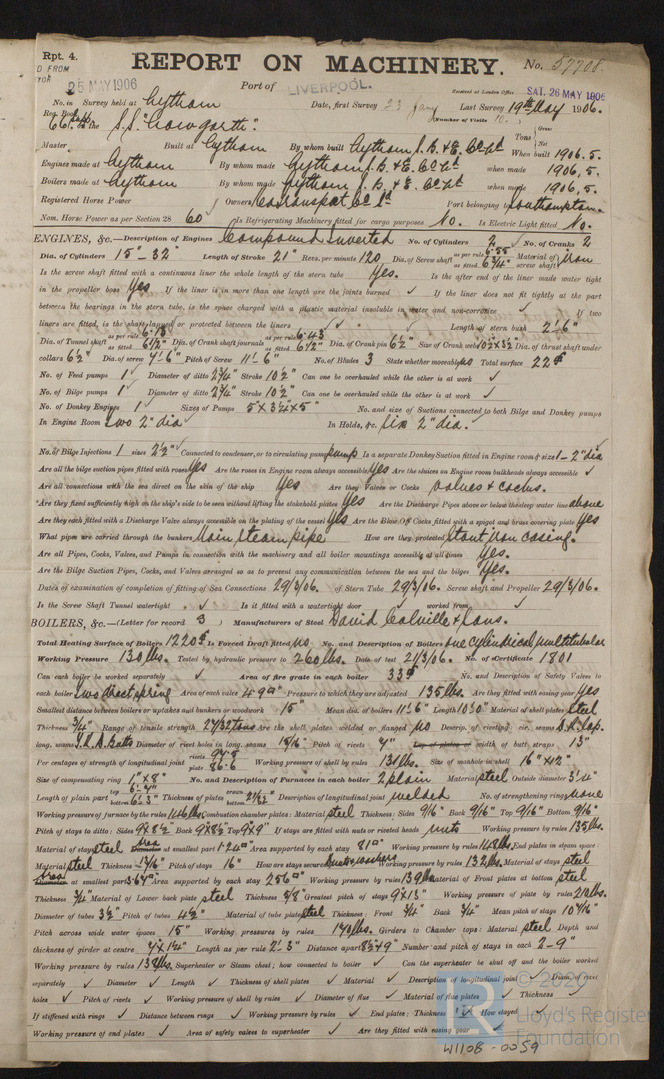 Rpt. 4.
REPORT ON MACHINERY.
No. 57708.
25 MAY 1906
Port of LIVERPOOL.
Received at London Office SAT. 26 MAY 1906
No. in Survey held at Lytham Date, first Survey 23 Jany Last Survey 19th May 1906.
Reg. Book. Number of Visits 10
on the S.S. "Cowgarth".
Tons Gross Net
Master Built at Lytham By whom built Lytham S.B. & E. Co Ld When built 1906.5.
Engines made at Lytham By whom made Lytham S.B. & E. Co Ld when made 1906.5.
Boilers made at Lytham By whom made Lytham S.B. & E. Co Ld when made 1906.5.
Registered Horse Power Owners Port belonging to Southampton.
Nom. Horse Power as per Section 28 60 Is Refrigerating Machinery fitted for cargo purposes No. Is Electric Light fitted No.
ENGINES, &c.—Description of Engines Compound Inverted No. of Cylinders 2 No. of Cranks 2
Dia. of Cylinders 15"-32" Length of Stroke 21" Revs. per minute 120 Dia. of Screw shaft as per rule 6.55 as fitted 6¾" Material of screw shaft Iron
Is the screw shaft fitted with a continuous liner the whole length of the stern tube Yes. Is the after end of the liner made water tight
in the propeller boss Yes If the liner is in more than one length are the joints burned ✓ If the liner does not fit tightly at the part
between the bearings in the stern tube, is the space charged with a plastic material insoluble in water and non-corrosive ✓ If two
liners are fitted, is the shaft lapped or protected between the liners ✓ Length of stern bush 2'-6"
Dia. of Tunnel shaft as per rule 6.18 as fitted 6½" Dia. of Crank shaft journals as per rule 6.43 as fitted 6½" Dia. of Crank pin 6½" Size of Crank webs Dia. of thrust shaft under
collars 6½" Dia. of screw 7'-6" Pitch of Screw 11'-6" No. of Blades 3 State whether moveable no Total surface 22 ft
No. of Feed pumps 1 Diameter of ditto 2¾" Stroke 10½" Can one be overhauled while the other is at work ✓
No. of Bilge pumps 1 Diameter of ditto 2¾" Stroke 10½" Can one be overhauled while the other is at work ✓
No. of Donkey Engines 1 Sizes of Pumps 5"x3¾"x5" No. and size of Suctions connected to both Bilge and Donkey pumps
In Engine Room Two 2" dia In Holds, &c. Six 2" dia.
No. of Bilge Injections 1 sizes 2½" Connected to condenser, or to circulating pump pump Is a separate Donkey Suction fitted in Engine room & size 1-2" dia
Are all the bilge suction pipes fitted with roses Yes Are the roses in Engine room always accessible Yes Are the sluices on Engine room bulkheads always accessible ✓
Are all connections with the sea direct on the skin of the ship Yes Are they Valves or Cocks valves & cocks.
Are they fixed sufficiently high on the ship's side to be seen without lifting the stokehold plates Yes Are the Discharge Pipes above or below the deep water line above
Are they each fitted with a Discharge Valve always accessible on the plating of the vessel Yes Are the Blow Off Cocks fitted with a spigot and brass covering plate Yes
What pipes are carried through the bunkers Main steam pipe How are they protected Stout iron casing.
Are all Pipes, Cocks, Valves, and Pumps in connection with the machinery and all boiler mountings accessible at all times Yes.
Are the Bilge Suction Pipes, Cocks, and Valves arranged so as to prevent any communication between the sea and the bilges Yes.
Dates of examination of completion of fitting of Sea Connections 29/3/06. of Stern Tube 29/3/06. Screw shaft and Propeller 29/3/06.
Is the Screw Shaft Tunnel watertight ✓ Is it fitted with a watertight door ✓ worked from ✓
BOILERS, &c.—(Letter for record S) Manufacturers of Steel David Colville & Sons.
Total Heating Surface of Boilers 1220 ft Is Forced Draft fitted no No. and Description of Boilers one cylindrical multitubular
Working Pressure 130 lbs. Tested by hydraulic pressure to 260 lbs. Date of test 21/3/06. No. of Certificate 1801
Can each boiler be worked separately ✓ Area of fire grate in each boiler 33 ft No. and Description of Safety Valves to
each boiler Two direct spring Area of each valve 4.9" Pressure to which they are adjusted 135 lbs. Are they fitted with easing gear Yes
Smallest distance between boilers or uptakes and bunkers or woodwork 15" Mean dia. of boilers 11'-6" Length 10'-0" Material of shell plates Steel
Thickness ¾" Range of tensile strength 27/32 tons Are the shell plates welded or flanged no Descrip. of riveting: cir. seams D.R. lap.
long. seams T.R.D. Butts Diameter of rivet holes in long. seams 15/16" Pitch of rivets 7" Lap of plates or width of butt straps 13"
Per centages of strength of longitudinal joint rivets plate 86.6 Working pressure of shell by rules 131 lbs. Size of manhole in shell 16"x12"
Size of compensating ring 1"x8" No. and Description of Furnaces in each boiler 2 plain Material steel Outside diameter
Length of plain part top bottom Thickness of plates crown bottom 21/32" Description of longitudinal joint welded No. of strengthening rings none
Working pressure of furnace by the rules 146 lbs. Combustion chamber plates: Material steel Thickness: Sides 9/16" Back 9/16" Top 9/16" Bottom 9/16"
Pitch of stays to ditto: Sides 9"x8½" Back 9"x8½" Top 9"x9" If stays are fitted with nuts or riveted heads nuts Working pressure by rules 135 lbs.
Material of stays steel Area at smallest part 1.24" Area supported by each stay 81" Working pressure by rules 148 lbs. End plates in steam space:
Material steel Thickness Pitch of stays 16" How are stays secured Working pressure by rules 132 lbs. Material of stays steel
Area at smallest part Area supported by each stay 256" Working pressure by rules 139 lbs. Material of Front plates at bottom steel
Thickness ¾" Material of Lower back plate steel Thickness 5/8" Greatest pitch of stays 9"x13" Working pressure of plate by rules
Diameter of tubes 3½" Pitch of tubes 4½" Material of tube plates steel Thickness: Front ¾" Back ¾" Mean pitch of stays
Pitch across wide water spaces 15" Working pressures by rules Girders to Chamber tops: Material steel Depth and
thickness of girder at centre 7"x1¼" Length as per rule 2'-3" Distance apart 8½"&9" Number and pitch of stays in each 2-9"
Working pressure by rules Superheater or Steam chest; how connected to boiler ✓ Can the superheater be shut off and the boiler worked
separately ✓ Diameter ✓ Length ✓ Thickness of shell plates ✓ Material ✓ Description of longitudinal joint ✓ Diam. of rivet
holes ✓ Pitch of rivets ✓ Working pressure of shell by rules ✓ Diameter of flue ✓ Material of flue plates ✓ Thickness ✓
If stiffened with rings ✓ Distance between rings ✓ Working pressure by rules ✓ End plates: Thickness ✓ How stayed ✓
Working pressure of end plates ✓ Area of safety valves to superheater ✓ Are they fitted with easing gear ✓
© 2020
Lloyd's Register
Foundation
W1108-0059